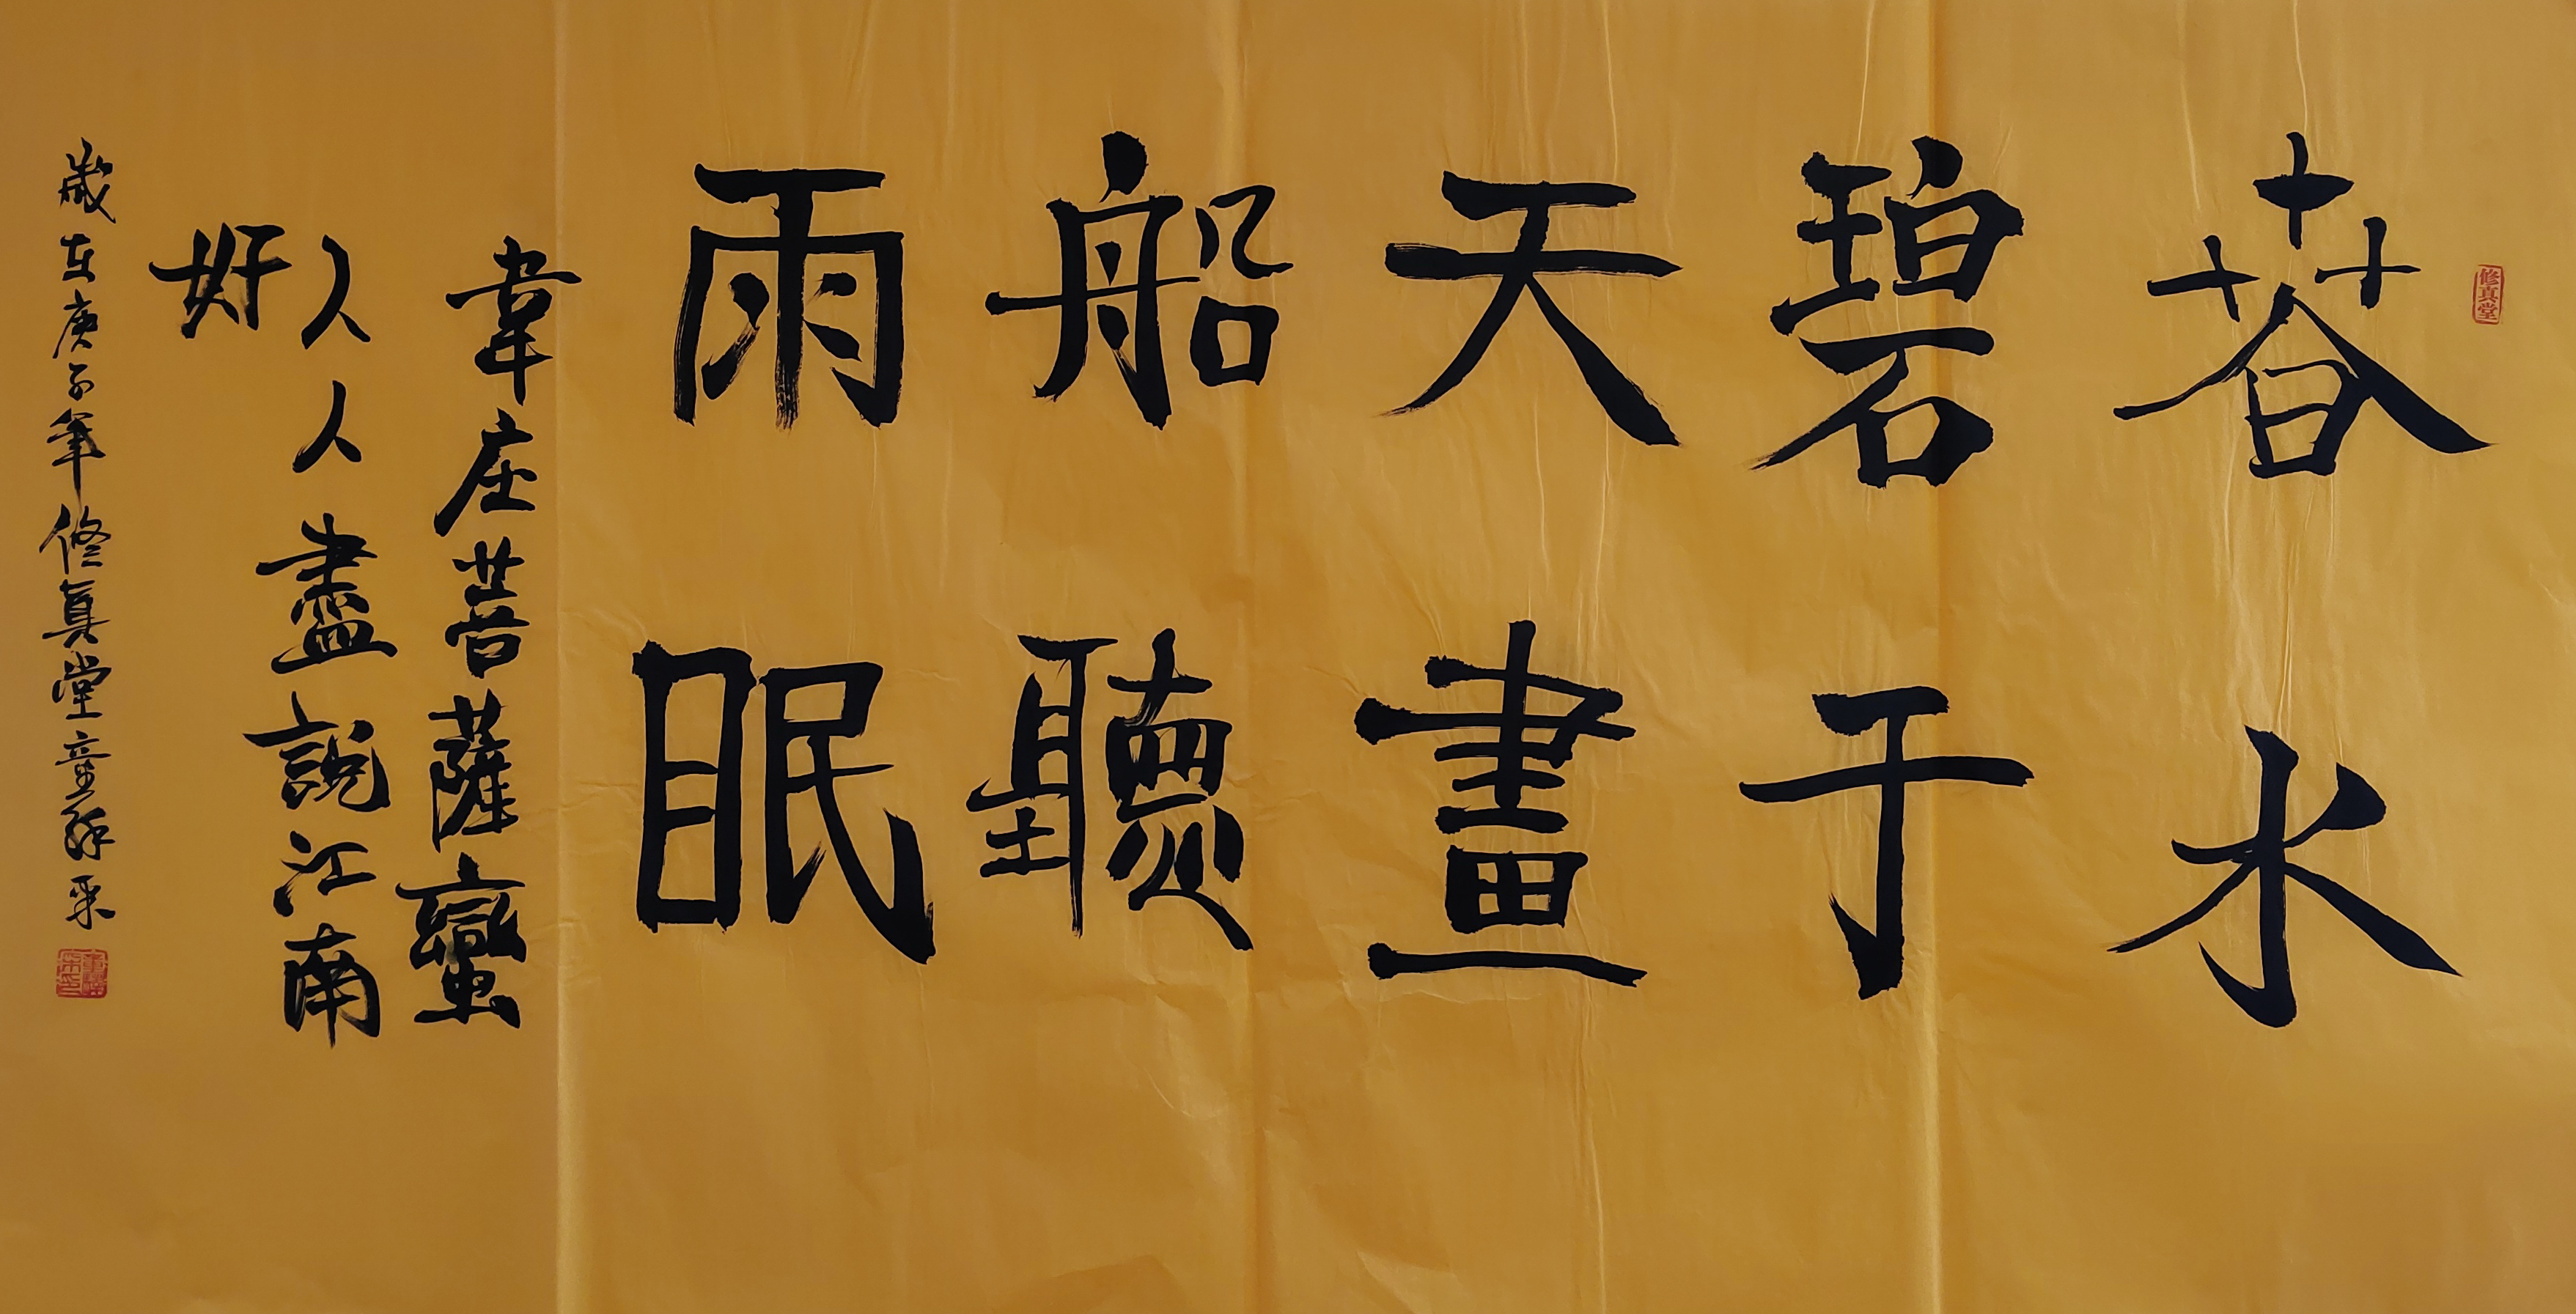 修真堂
春水
碧于
天畫
船聽
雨眠
韋庄菩薩蠻
人人盡說江南
好
歲在庚子年修真堂童辭采